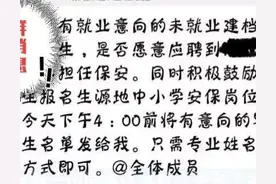 有就业意向的未就业建档
生，是否愿意应聘到
担任保安。同时积极鼓励
生报名生源地中小学安保岗位
今天下午4:00前将有意向的
生名单发给我。只需专业姓名
方式即可。@全体成员
!!